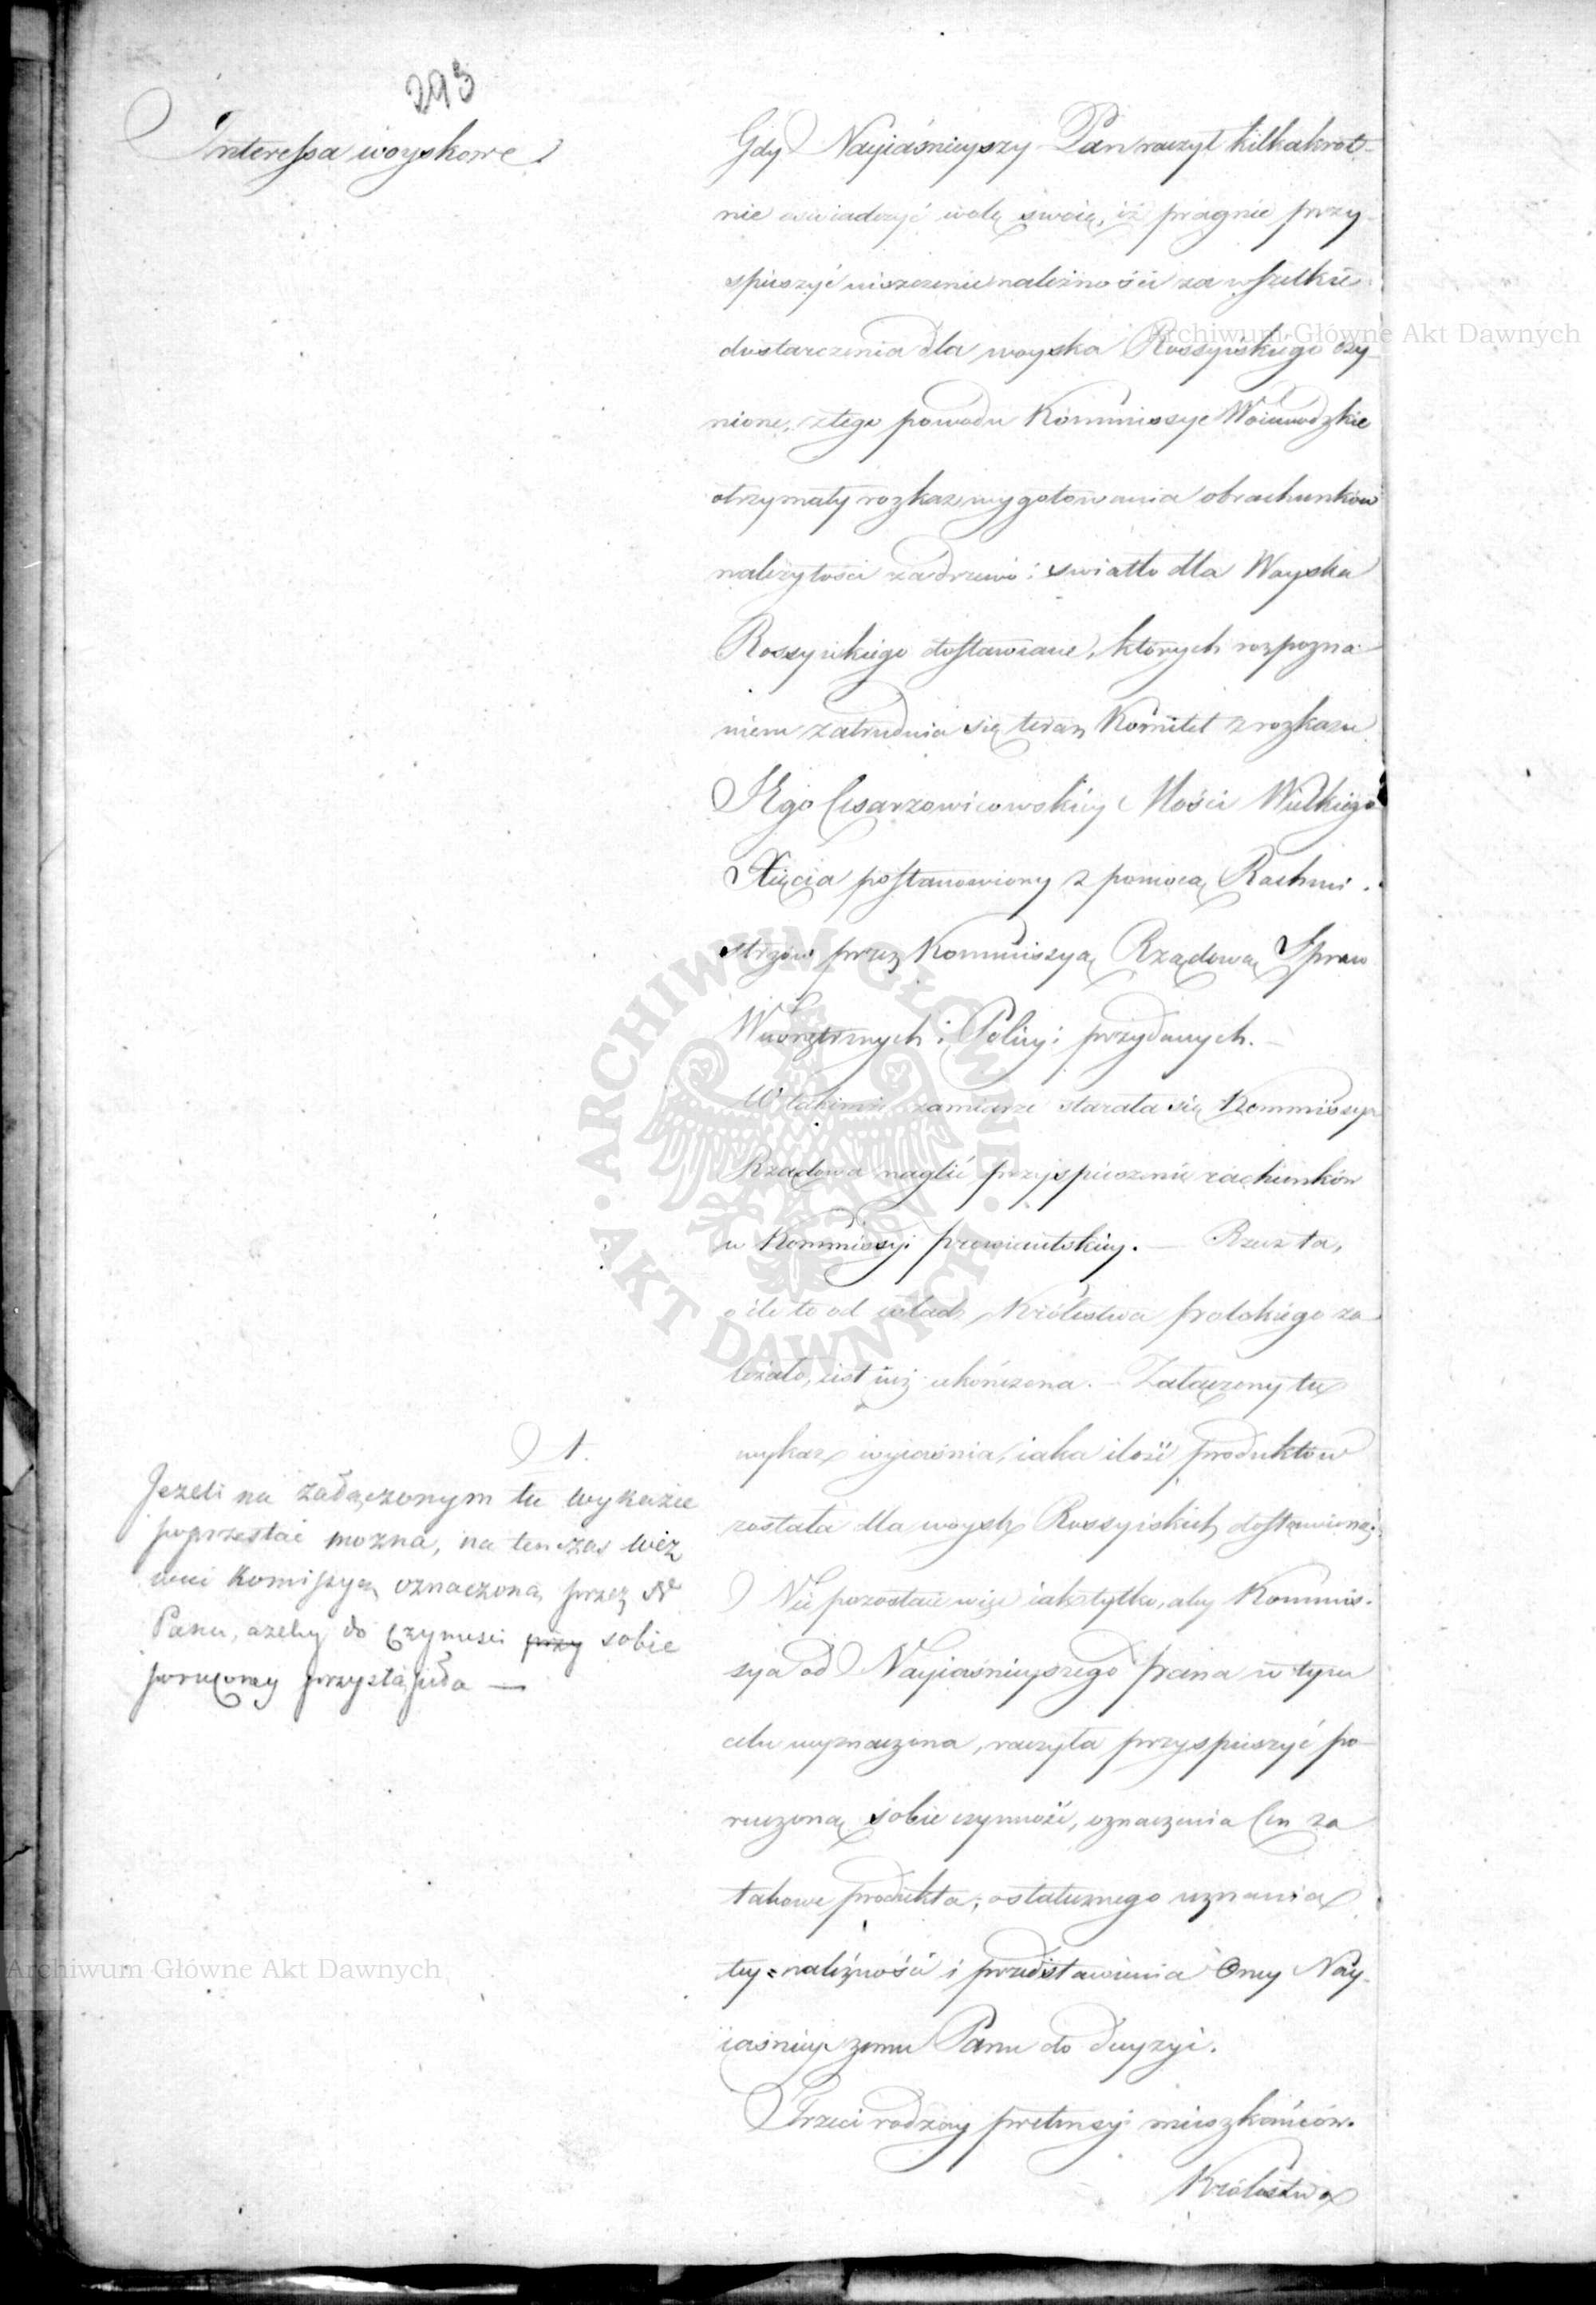 293
Interessa woyskowe
Gdy Nayiaśnieyszy Pan raczył kilkakrot-
nie oświadczyć wolę swoią, iż pragnie przy-
spieszyć uiszczenie należności za wszelkie
dostarczenia dla woyska Rossyiskiego czy-
nione, z tego powodu Kommissye Woiewodzkie
otrzymały rozkaz wygotowania obrachunków
należytości za drzewo i swiatło dla Woyska
Rossyiskiego dostawiane, których rozpozna-
niem zatrudnia się teraz Komitet z rozkazu
JEgo Cesarzowicowskiey Mości Wielkiego
Xięcia postanowiony z pomocą Rachmi-
strzów przez Kommissyą Rządową Spraw
Wewnętrznych i Policyi przydanych.
W takimże zamiarze starała się Kommissya
Rządowa naglić przyspieszenie rachunków
w Kommissyi prowiantskiey. — Rzecz ta,
o ile to od władz Królestwa polskiego za-
leżało, iest iuż ukończona. — Załączony tu
wykaz wyiaśnia, iaka ilość produktów
została dla woysk Rossyiskich dostawioną.
Nie pozostaie więc iak tylko, aby Kommis-
sya od Nayiaśnieyszego pana w tym
celu wyznaczona, raczyła przyspieszyć po-
ruczoną sobie czynność, oznaczenia Cen za
takowe produkta, ostatecznego uznania
tey należności i przedstawienia Oney Nay-
iaśnieyszemu Panu do decyzyi.
Trzeci rodzay pretensyi mieszkańców
Królestwa
1.
Jeżeli na załączonym tu wykazie
poprzestać można, na tenczas wez
wać Komissyą oznaczoną przez N
Pana, ażeby do czynności przy sobie
poruczoney przystąpiła —
Archiwum Główne Akt Dawnych
Archiwum Główne Akt Dawnych
ARCHIWUM GŁÓWNE · AKT DAWNYCH ·